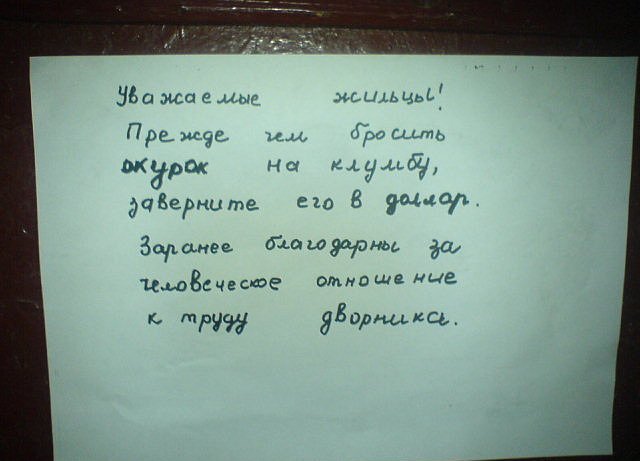 Уважаемые жильцы!
Прежде чем бросить
окурок на клумбу,
заверните его в доллар.
Заранее благодарны за
человеческое отношение
к труду дворника.